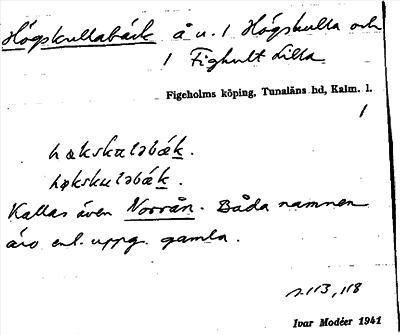 Högskullabäck å u. 1 Högskulla och
1 Fighult Lilla
Figeholms köping, Tunaläns hd, Kalm. l.
1
hækskuləbæk.
høkskuləbæk.
Kallas även Norrån. Båda namnen
äro enl. uppg. gamla.
s. 113, 118
Ivar Modéer 1941